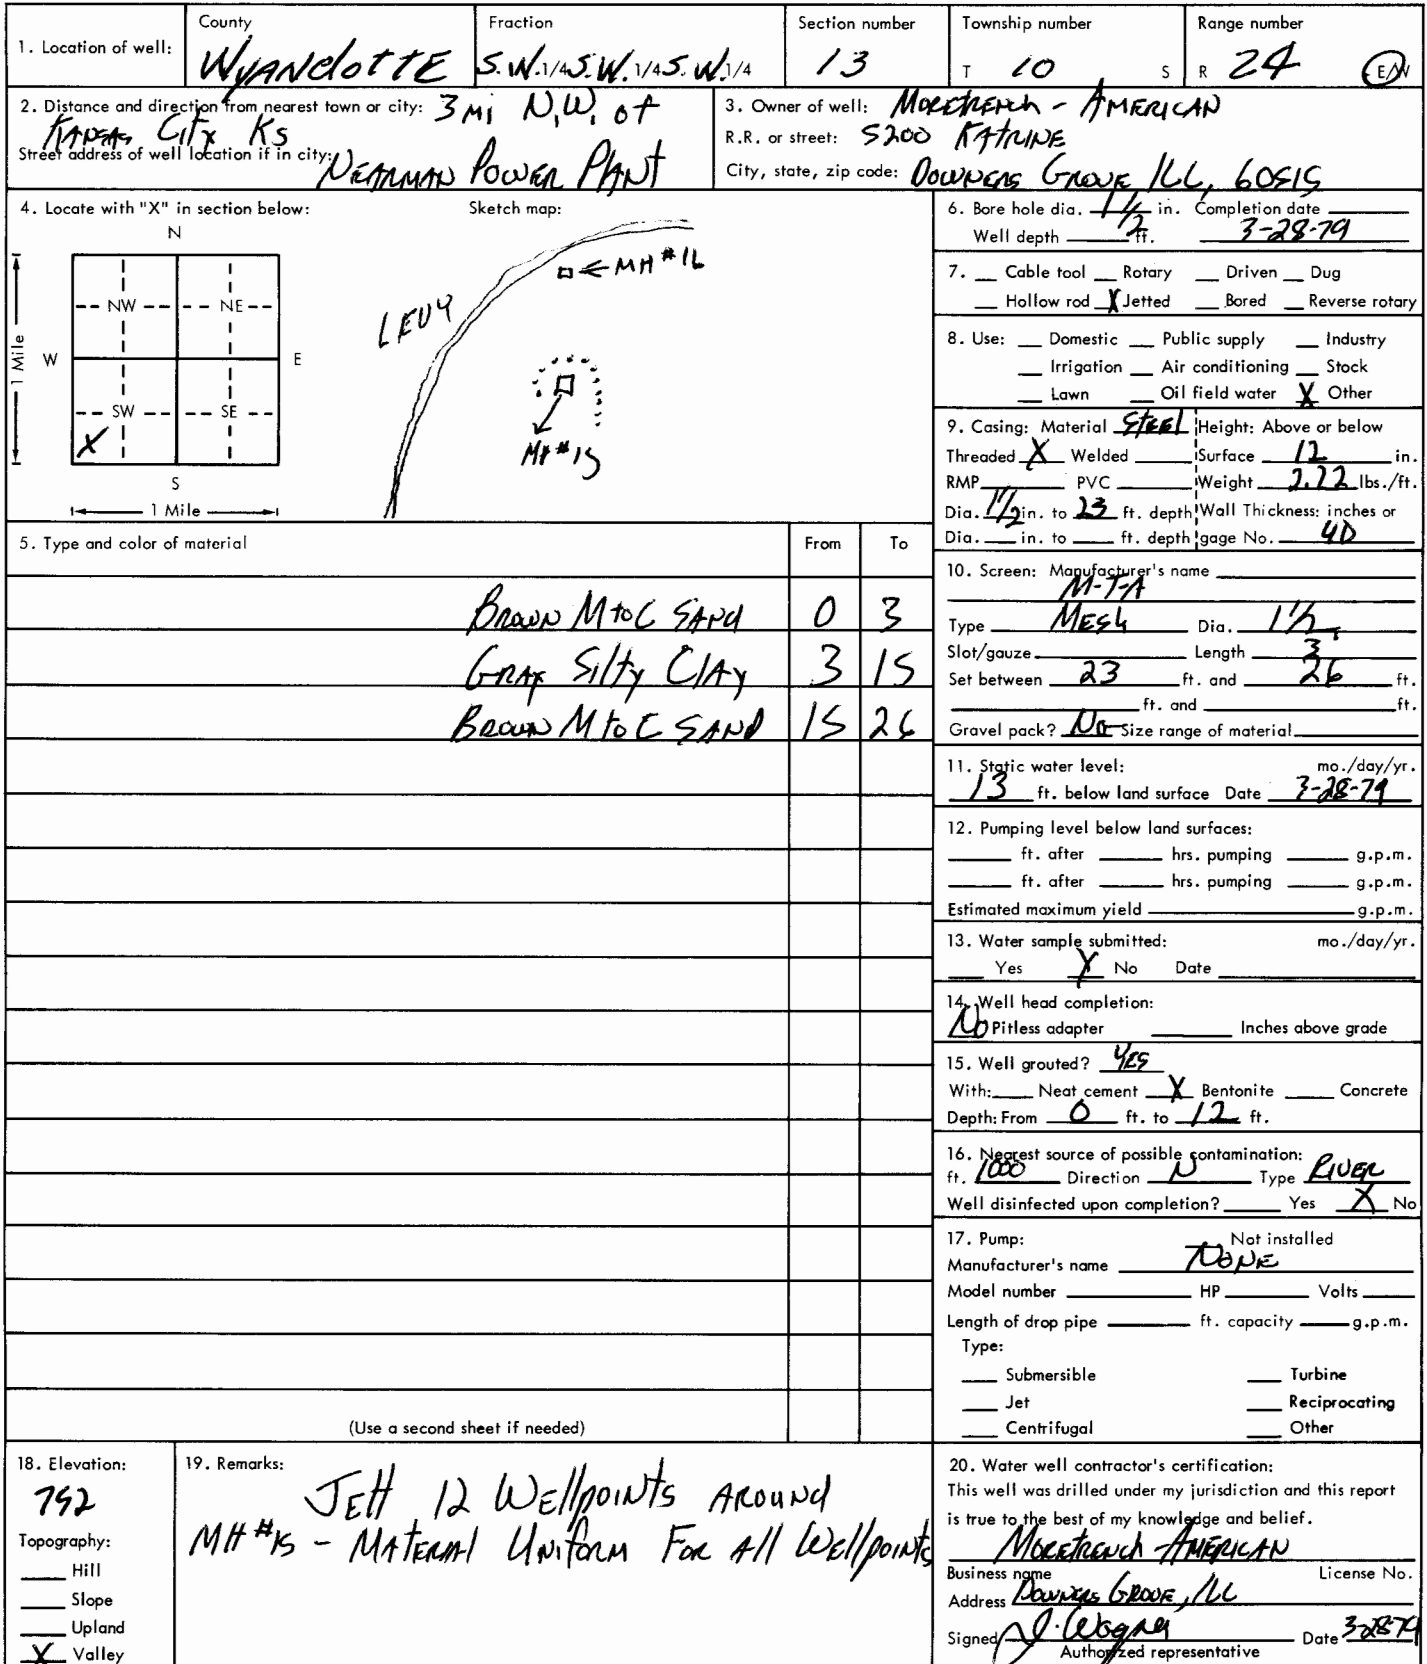 1. Location of well:
County
Wyandotte
Fraction
S.W. 1/4 S.W. 1/4 S.W. 1/4
Section number
13
Township number
T 10 S
Range number
R 24 E/W
2. Distance and direction from nearest town or city: 3 mi N.W. of
Kansas City Ks
Street address of well location if in city: Nearman Power Plant
3. Owner of well: Moretrench - American
R.R. or street: 5200 Katrine
City, state, zip code: Downers Grove ILL, 60515
4. Locate with "X" in section below:
N
NW NE
W E
SW SE
X
S
1 Mile
1 Mile
Sketch map:
MH #16
LEVY
MH #15
5. Type and color of material From To
Brown M to C Sand 0 3
Gray Silty Clay 3 15
Brown M to C Sand 15 26
(Use a second sheet if needed)
6. Bore hole dia. 1 1/2 in. Completion date
Well depth ft. 3-28-79
7. Cable tool Rotary Driven Dug
Hollow rod X Jetted Bored Reverse rotary
8. Use: Domestic Public supply Industry
Irrigation Air conditioning Stock
Lawn Oil field water X Other
9. Casing: Material Steel Height: Above or below
Threaded X Welded Surface 12 in.
RMP PVC Weight lbs./ft.
Dia. 1 1/2 in. to 23 ft. depth Wall Thickness: inches or
Dia. in. to ft. depth gage No. 40
10. Screen: Manufacturer's name
M-T-A
Type Mesh Dia. 1 1/2
Slot/gauze Length 3
Set between 23 ft. and 26 ft.
ft. and ft.
Gravel pack? No Size range of material
11. Static water level: mo./day/yr.
13 ft. below land surface Date 3-28-79
12. Pumping level below land surfaces:
ft. after hrs. pumping g.p.m.
ft. after hrs. pumping g.p.m.
Estimated maximum yield g.p.m.
13. Water sample submitted: mo./day/yr.
Yes X No Date
14. Well head completion:
No Pitless adapter Inches above grade
15. Well grouted? Yes
With: Neat cement X Bentonite Concrete
Depth: From 0 ft. to 12 ft.
16. Nearest source of possible contamination:
ft. 1000 Direction N Type River
Well disinfected upon completion? Yes X No
17. Pump: Not installed
Manufacturer's name None
Model number HP Volts
Length of drop pipe ft. capacity g.p.m.
Type:
Submersible Turbine
Jet Reciprocating
Centrifugal Other
18. Elevation:
752
Topography:
Hill
Slope
Upland
X Valley
19. Remarks:
Jett 12 Wellpoints Around
MH #15 - Material Uniform For All Wellpoints
20. Water well contractor's certification:
This well was drilled under my jurisdiction and this report
is true to the best of my knowledge and belief.
Moretrench - American
Business name License No.
Address Downers Grove, ILL
Signed J. Wagner Date 3-28-79
Authorized representative